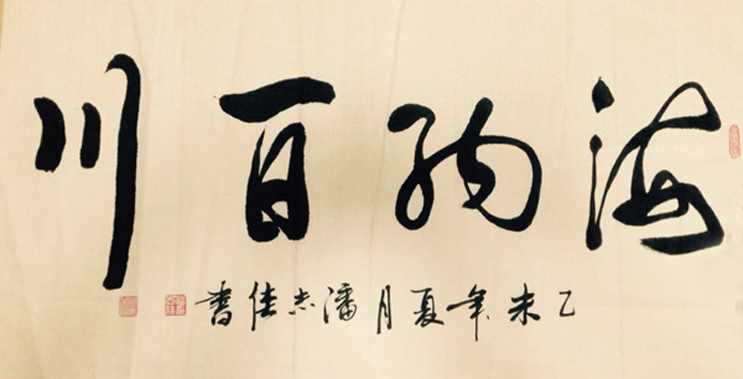 海纳百川
乙未年夏月潘志佳書